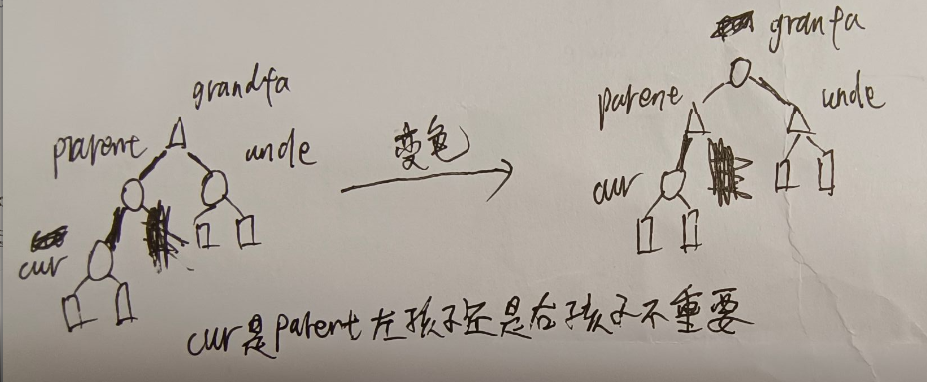 grandfa
parent
uncle
cur
变色
granfa
parent
uncle
cur
cur是parent左孩子还是右孩子不重要